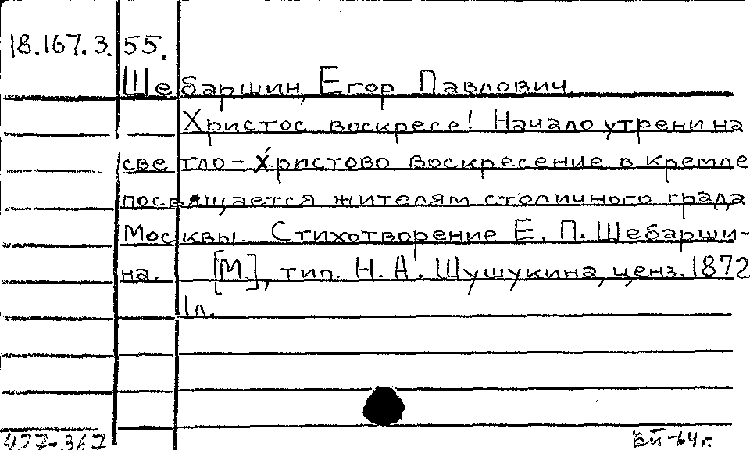 18.167.3.55.
Шебаршин, Егор Павлович
Христос воскресе! Начало утрени на
светло-Христово Воскресение в Кремле
посвящается жителям столичного града
Москвы. Стихотворение Е. П. Шебарши-
на. [М], тип. Н. А. Шушукина, ценз. 1872
1л.
477-367